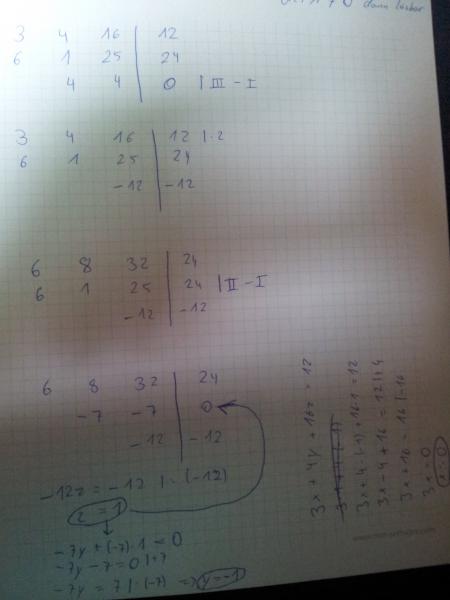 dann lösbar
3 4 16 | 12
6 1 25 | 24
4 4 | 0 | III - I
3 4 16 | 12 | · 2
6 1 25 | 24
-12 | -12
6 8 32 | 24
6 1 25 | 24 | II - I
-12 | -12
6 8 32 | 24
-7 -7 | 0
-12 | -12
-12z = -12 | : (-12)
z = 1
-7y + (-7) · 1 = 0
-7y - 7 = 0 | +7
-7y = 7 | : (-7) => y = -1
3x + 4y + 16z = 12
3x + 4 · (-1) + 16 · 1 = 12
3x - 4 + 16 = 12 | +4
3x + 16 = 16 | -16
3x = 0
x = 0